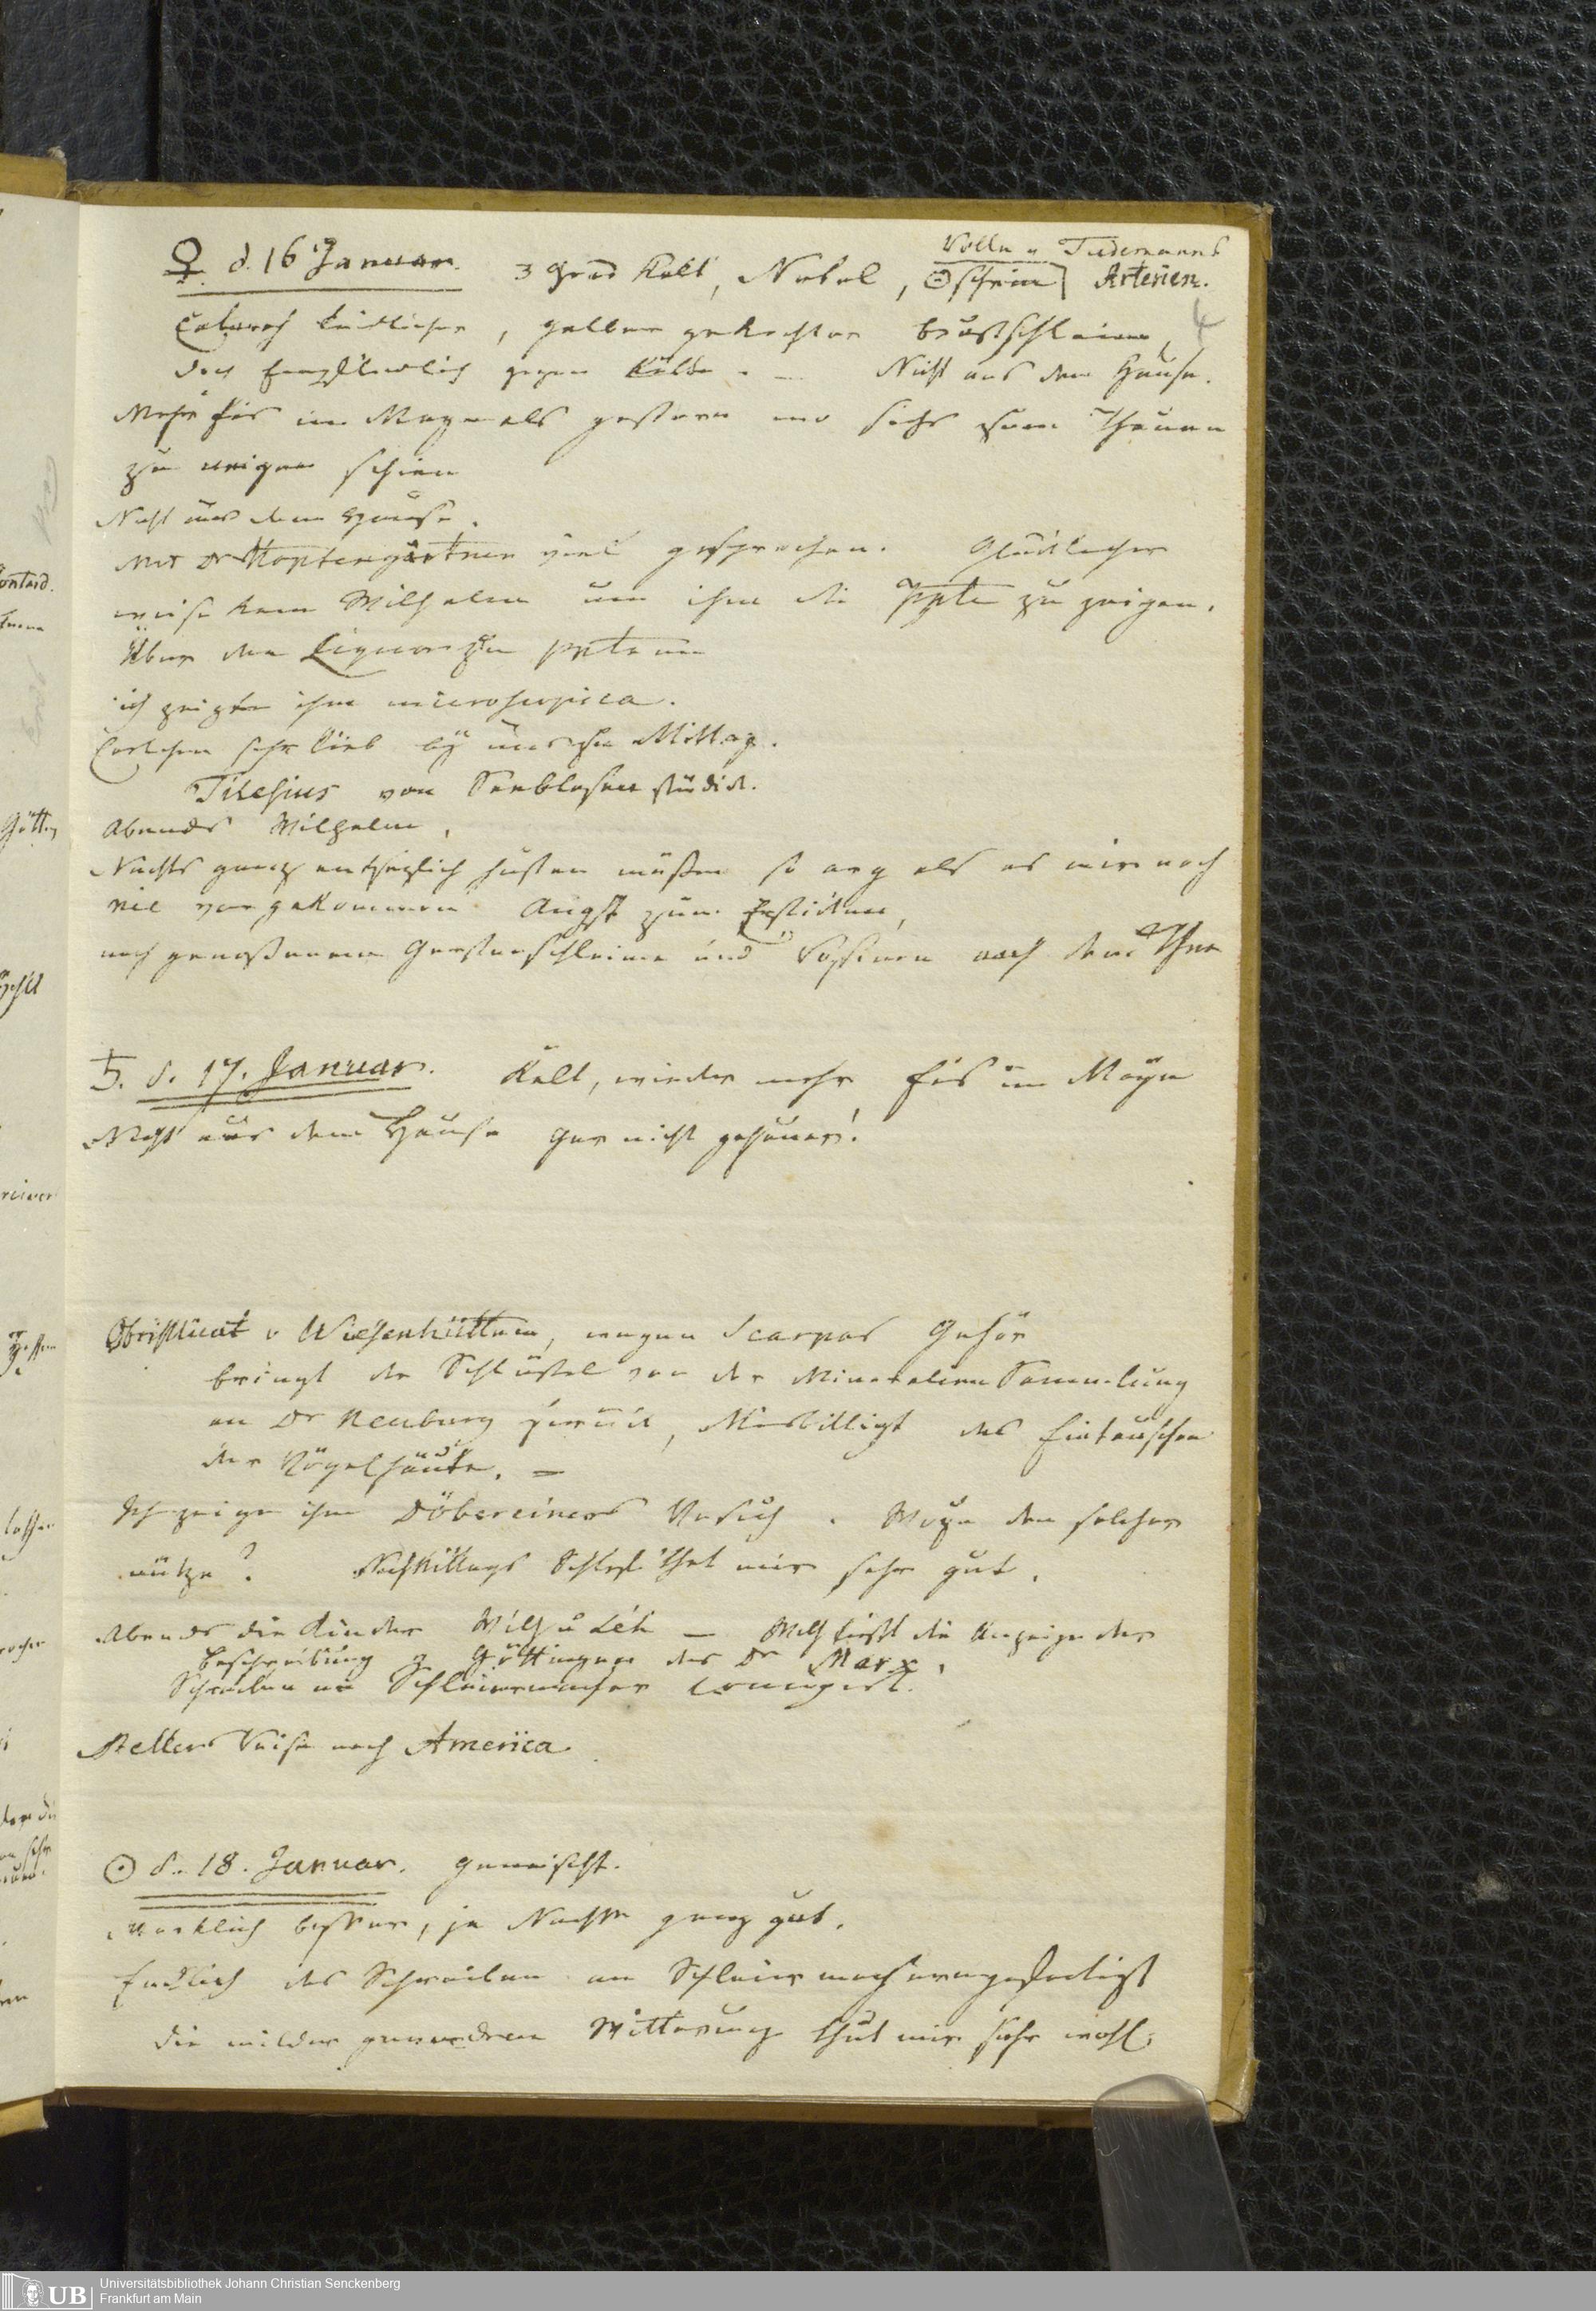 ♀. d. 16 Januar. 3 Grad Kalt, Nebel, ☉schein] Tiedemanns
Arterien.
4
Catarrh leidlicher, gelber gekochter Brustschleim,
doch Empfindlich gegen Kälte. — Nicht aus dem Hause.
Mehr Eis im Mayn als gestern wo sichs zum Thauen
zu neigen schien
Nicht aus dem Hause.
Mit Dr Hoptengärtner viel gesprochen. Glücklicher
weise kam Wilhelm um ihm die Ppte zu zeigen.
Über den Liquor zu Ppten
ich zeigte ihm microscopica.
Carlchen sehr lieb by uns zu Mittag.
Tilesius von Seeblasen studirt.
Abends Wilhelm.
Nachts ganz entsezlich husten müßen so arg als es mir noch
nie vorgekommen Angst zum Ersticken,
nach genoßenem Gerstenschleime und Rosinen nach dem Thee
♄. d. 17. Januar. Kalt, wieder mehr Eis im Mayn
Nicht aus dem Hause gar nicht geheuer!
Obristlieut v Wiesenhütten, wegen Scarpas Gehör
bringt de Schlüßel von der Mineralien Sammlung
an Dr Neuburg zurück, Misbilligt das Eintauschen
der Vögelhäute. —
Ich zeige ihm Döbereiners Versuch. Wozu den solcher
nütze? NachMittags Schlaf that mir sehr gut.
Abends die Kinder Wilh u — Wilh ließt die Anzeige der
Beschreibung z Göttingen des Dr Marx.
Schreiben an Schleiermacher corrigirt.
Stellers Reise nach America.
☉ d. 18. Januar. gemischt.
Merklich besser, ja Nachts ganz gut.
Endlich das Schreiben an Schleiermacher ausgefertigt
die milder gewordene Witterung thut mir sehr wohl.
UB Universitätsbibliothek Johann Christian Senckenberg
Frankfurt am Main